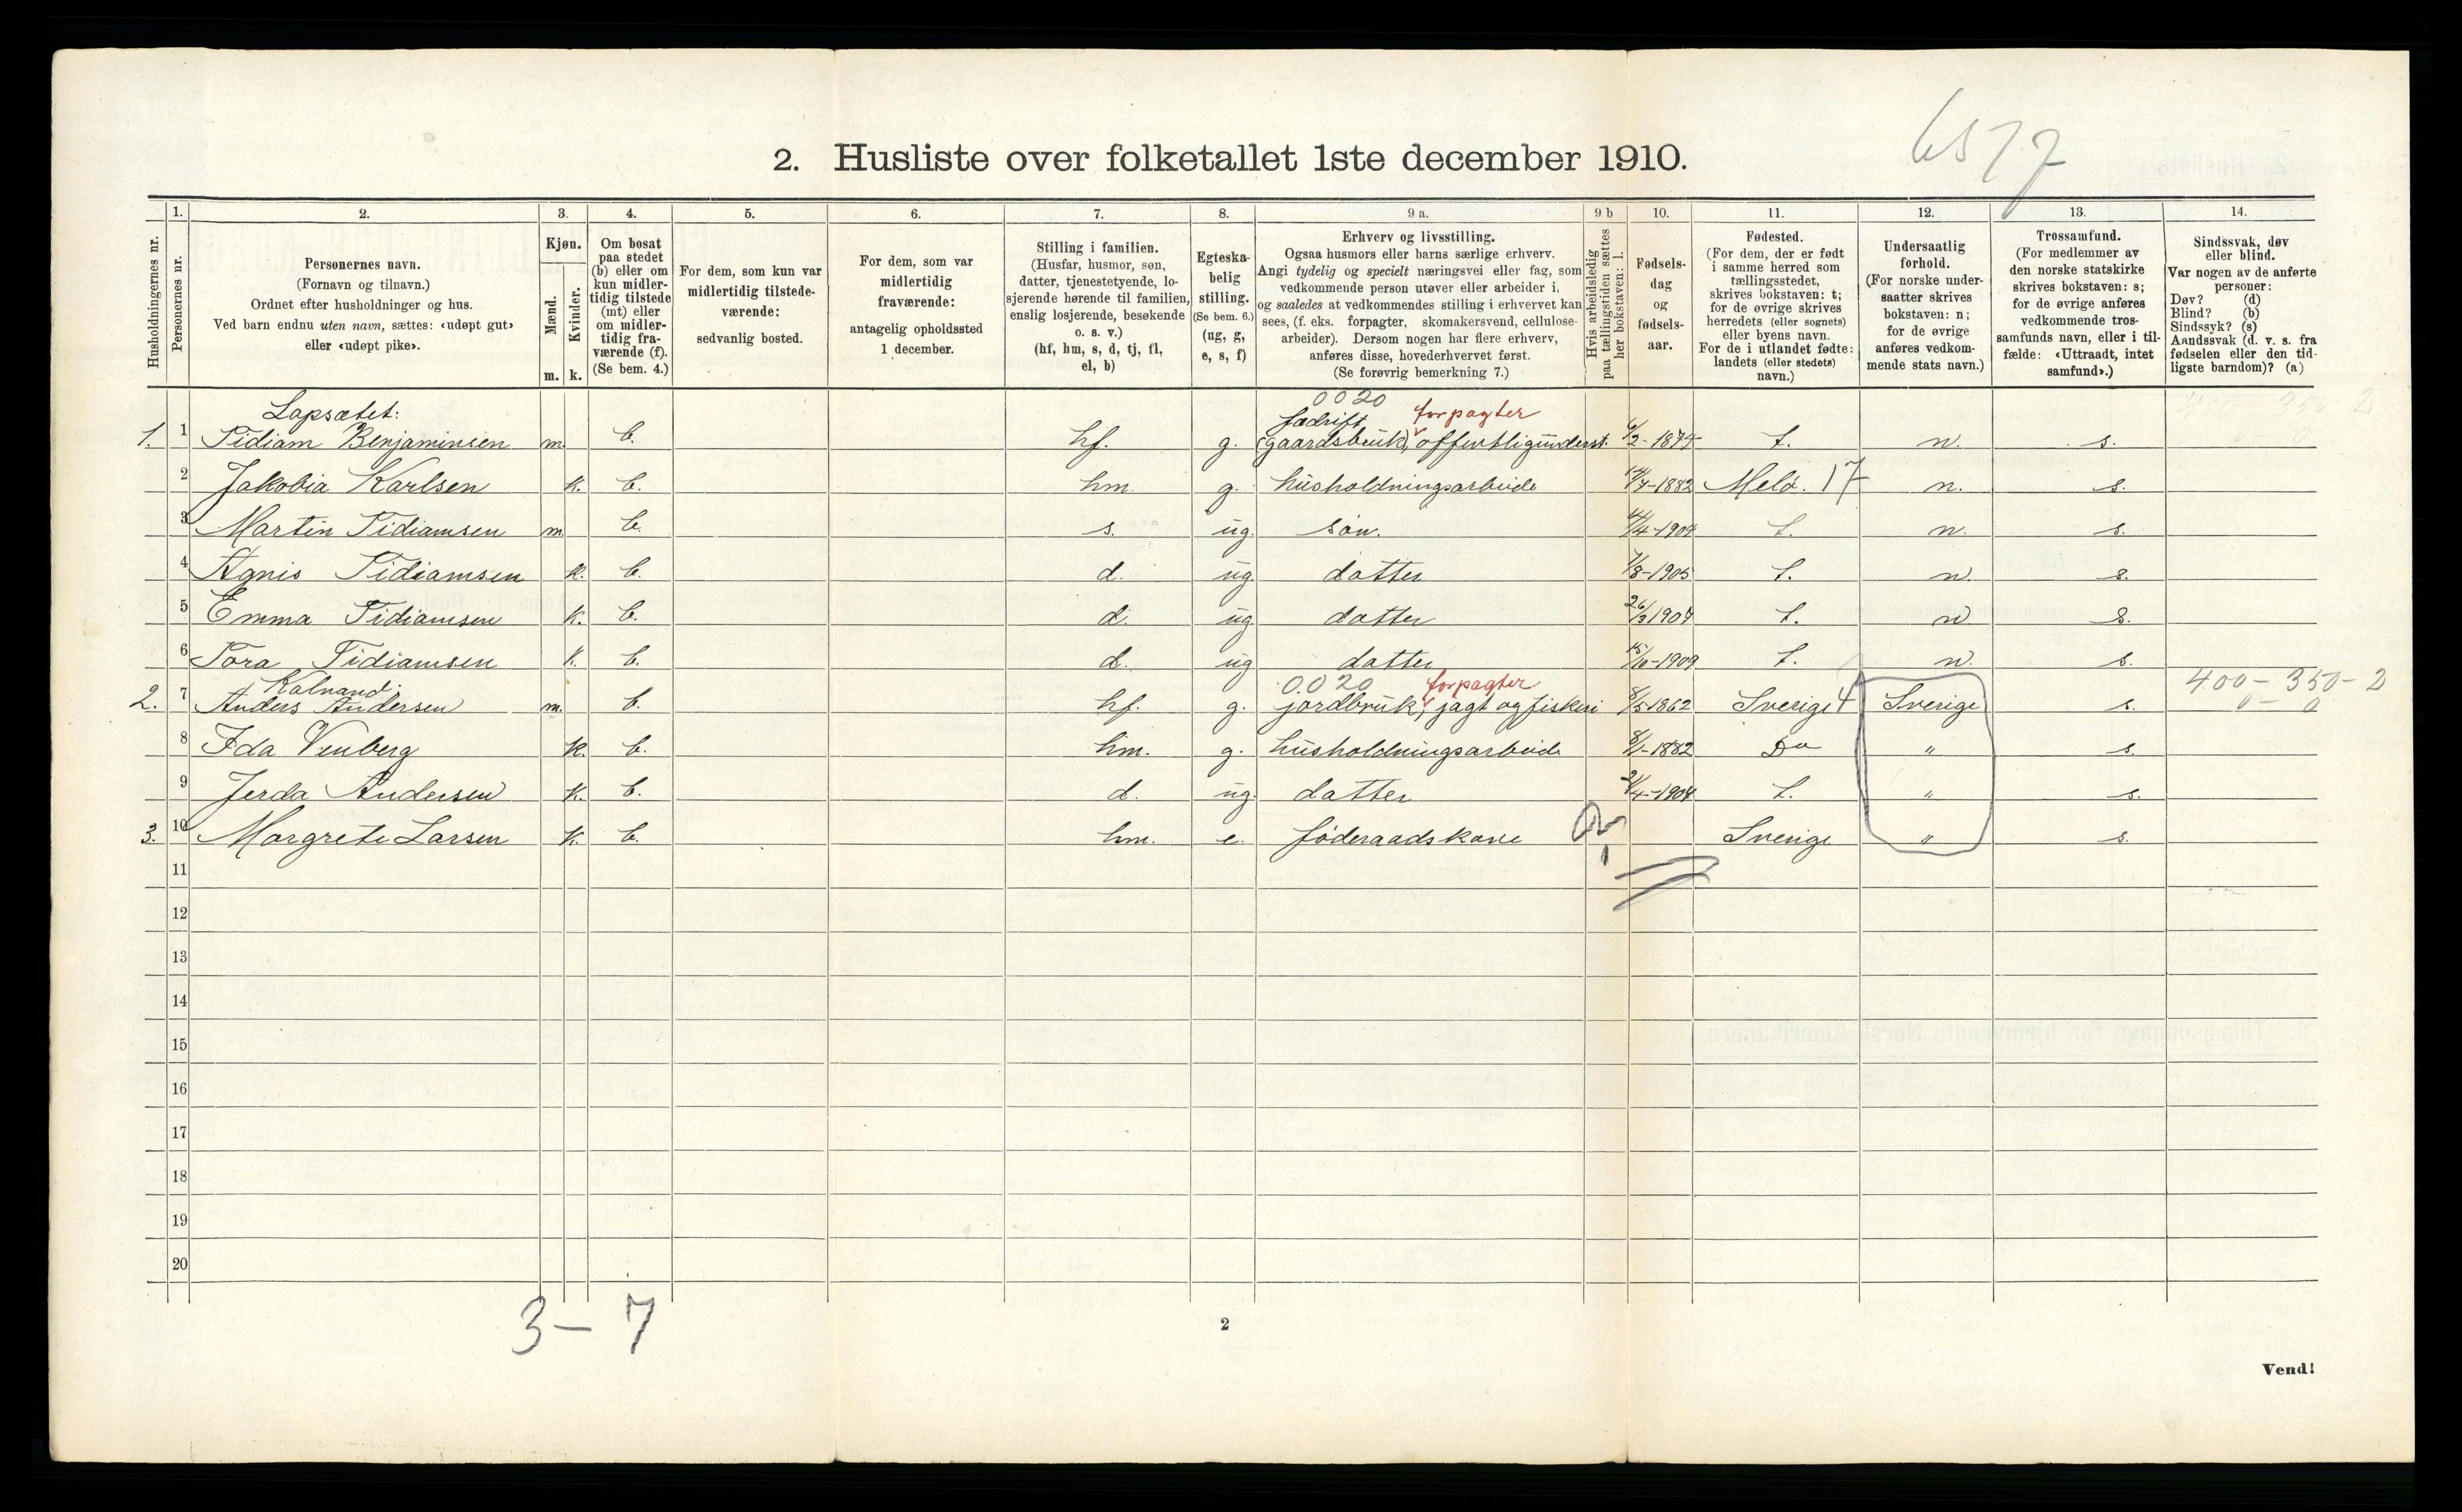 2. Husliste over folketallet 1ste december 1910.
6577
Husholdningernes nr.
1.
Personernes nr.
2.
Personernes navn.
(Fornavn og tilnavn.)
Ordnet efter husholdninger og hus.
Ved barn endnu uten navn, sættes: «udøpt gut»
eller «udøpt pike».
3.
Kjøn.
Mænd.
Kvinder.
m. k.
4.
Om bosat
paa stedet
(b) eller om
kun midler-
tidig tilstede
(mt) eller
om midler-
tidig fra-
værende (f).
(Se bem. 4.)
5.
For dem, som kun var
midlertidig tilstede-
værende:
sedvanlig bosted.
6.
For dem, som var
midlertidig
fraværende:
antagelig opholdssted
1 december.
7.
Stilling i familien.
(Husfar, husmor, søn,
datter, tjenestetyende, lo-
sjerende hørende til familien,
enslig losjerende, besøkende
o. s. v.)
(hf, hm, s, d, tj, fl,
el, b)
8.
Egteska-
belig
stilling.
(Se bem. 6.)
(ug, g,
e, s, f)
9 a.
Erhverv og livsstilling.
Ogsaa husmors eller barns særlige erhverv.
Angi tydelig og specielt næringsvei eller fag, som
vedkommende person utøver eller arbeider i,
og saaledes at vedkommendes stilling i erhvervet kan
sees, (f. eks. forpagter, skomakersvend, cellulose-
arbeider). Dersom nogen har flere erhverv,
anføres disse, hovederhvervet først.
(Se forøvrig bemerkning 7.)
9 b
Hvis arbeidsledig
paa tællingstiden sættes
her bokstaven: l.
10.
Fødsels-
dag
og
fødsels-
aar.
11.
Fødested.
(For dem, der er født
i samme herred som
tællingsstedet,
skrives bokstaven: t;
for de øvrige skrives
herredets (eller sognets)
eller byens navn.
For de i utlandet fødte:
landets (eller stedets)
navn.)
12.
Undersaatlig
forhold.
(For norske under-
saatter skrives
bokstaven: n;
for de øvrige
anføres vedkom-
mende stats navn.)
13.
Trossamfund.
(For medlemmer av
den norske statskirke
skrives bokstaven: s;
for de øvrige anføres
vedkommende tros-
samfunds navn, eller i til-
fælde: «Uttraadt, intet
samfund».)
14.
Sindssvak, døv
eller blind.
Var nogen av de anførte
personer:
Døv? (d)
Blind? (b)
Sindssyk? (s)
Aandssvak (d. v. s. fra
fødselen eller den tid-
ligste barndom)? (a)
Lapsætet: 0020
fædrift forpagter
1. 1 Tidiam Benjaminsen m. b. hf. g. (gaardsbruk), offentligunderst. 6/2-1874 t. n. s.
2 Jakobia Karlsen k. b. hm. g. husholdningsarbeide 14/7-1882 Melö. 17 n. s.
3 Martin Tidiamsen m. b. s. ug. søn. 4-1904 t. n. s.
4 Agnis Tidiamsen k. b. d. ug. datter 7/8-1905 t. n. s.
5 Emma Tidiamsen k. b. d. ug datter 26/3 1907 t. n s.
6 Tora Tidiamsen k. b. d. ug datter 15/10-1909 t. n. s.
Kolnand. 0.020 forpagter 400-350-2
2. 7 Anders Andersen m. b. hf. g. jordbruk, jagt og fiskeri 8/5-1862 Sverige 4 Sverige s. 0-0
8 Ida Venberg k. b. hm. g. husholdningsarbeide 8/1-1882 Do " s.
9 Jerda Andersen k. b. d. ug. datter 2/4-1904 t. " s.
3. 10 Margrete Larsen k. b. hm. e. föderaadskone ? Sverige " s.
11
12
13
14
15
16
17
18
19
20
3-7
2
Vend!